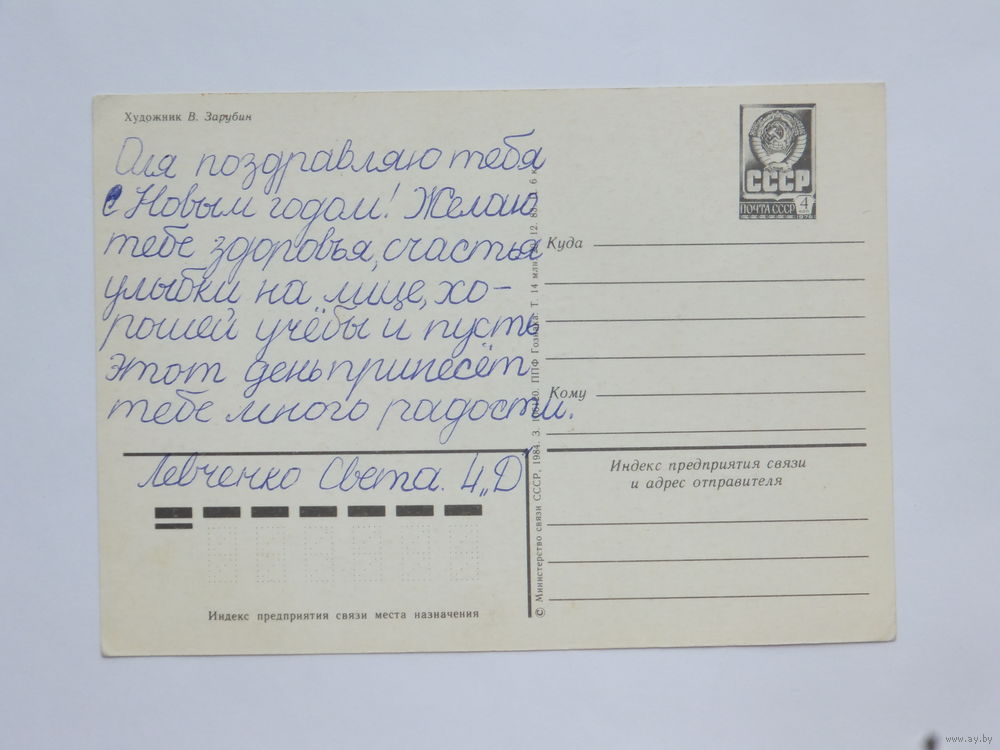 Художник В. Зарубин
Оля поздравляю тебя
с Новым годом! Желаю
тебе здоровья, счастья
улыбки на лице, хо-
рошей учёбы и пусть
этот день принесёт
тебе много радости.
Левченко Света. 4 „Д"
Индекс предприятия связи места назначения
© Министерство связи СССР, 1984. З. ППФ Гознака. Т. 14 млн. 12. 6 к.
СССР
ПОЧТА СССР 4
1976
Куда
Кому
Индекс предприятия связи
и адрес отправителя
www.ay.by